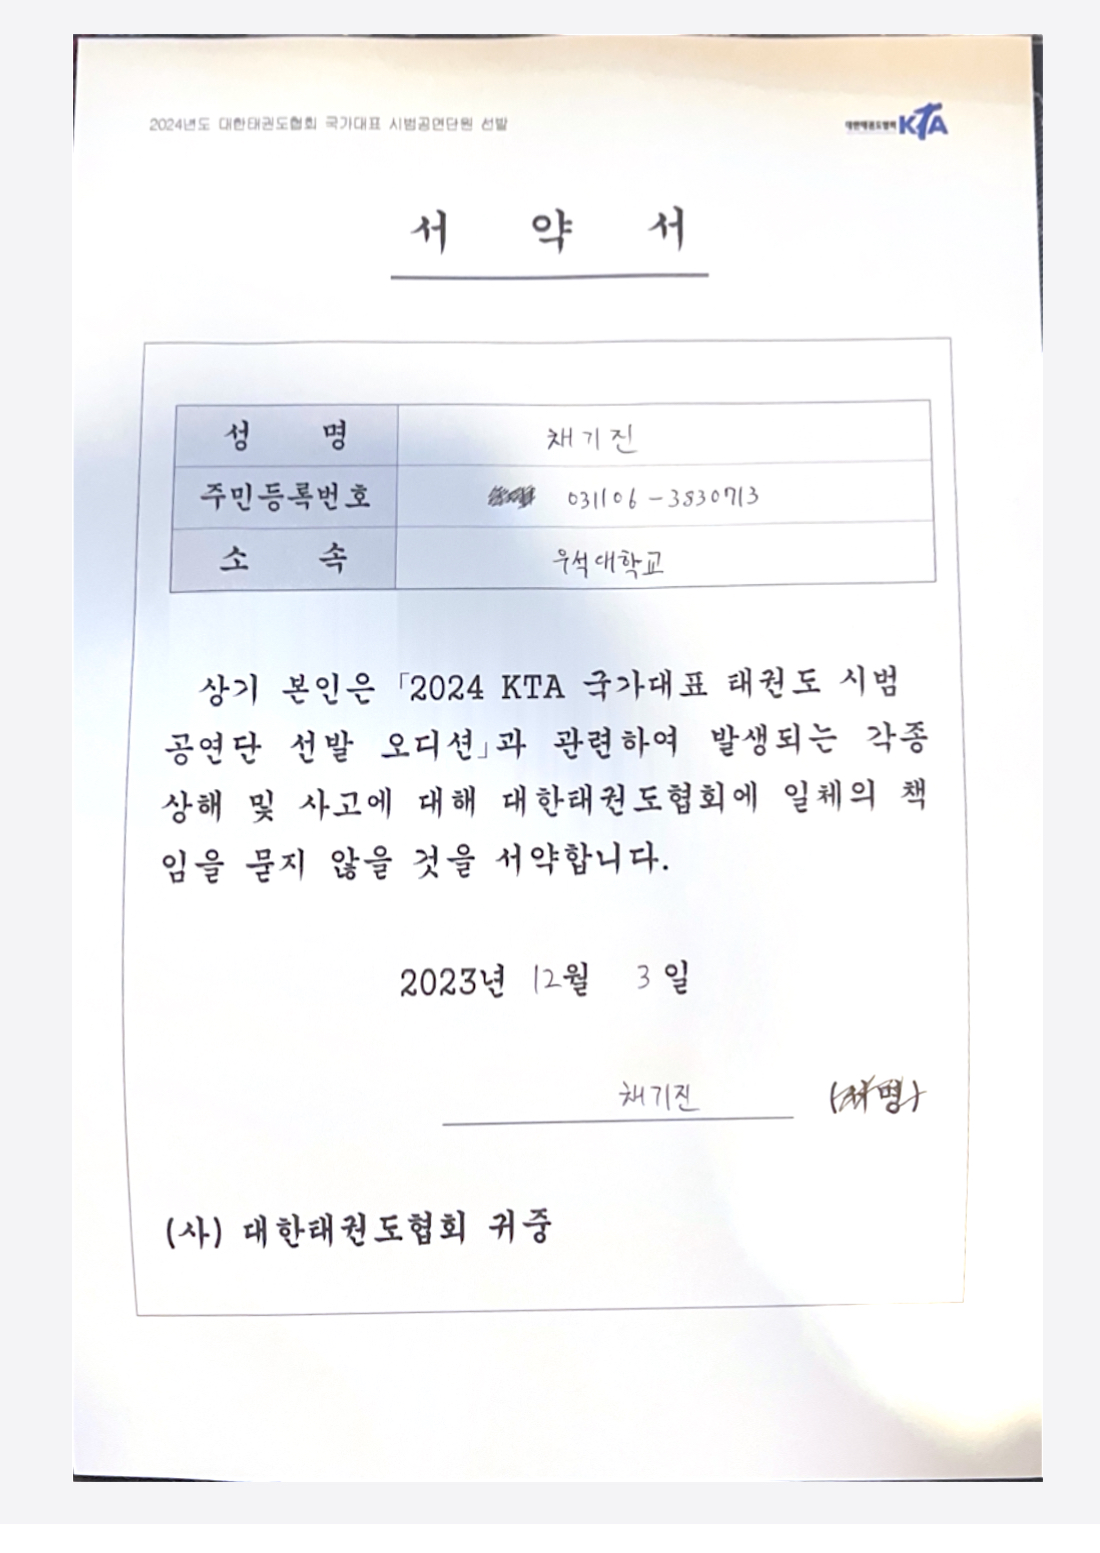 2024년도 대한태권도협회 국가대표 시범공연단원 선발
대한태권도협회 KTA
서 약 서
성 명 채기진
주민등록번호 031106-3830713
소 속 우석대학교
상기 본인은 「2024 KTA 국가대표 태권도 시범
공연단 선발 오디션」과 관련하여 발생되는 각종
상해 및 사고에 대해 대한태권도협회에 일체의 책
임을 묻지 않을 것을 서약합니다.
2023년 12월 3일
채기진
(사) 대한태권도협회 귀중